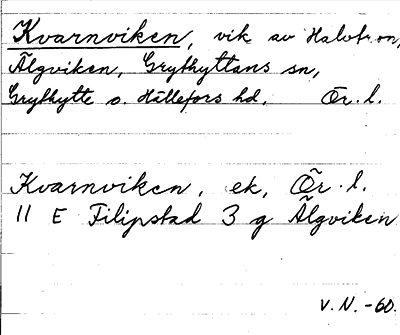 Kvarnviken, vik av Halvtron,
Älgviken, Grythyttans sn,
Grythytte o. Hällefors hd. Ör. l.
Kvarnviken, ek, Ör. l.
11 E Filipstad 3 g Älgviken
V. N. -60.